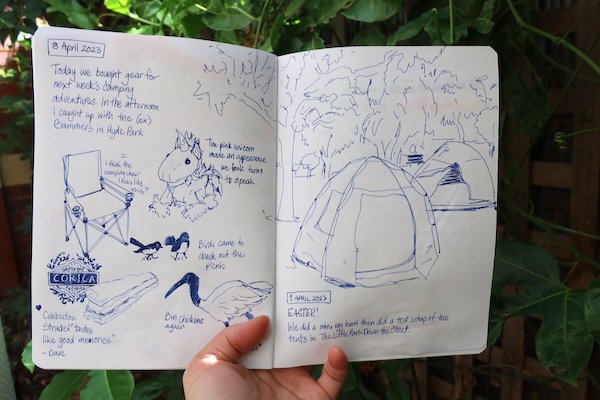 8 April 2023
Today we bought gear for
next week's camping
adventures. In the afternoon
I caught up with the (ex)
Bammers in Hyde Park.
I think the
camping chair
was like
this?
The pink unicorn
made an appearance
as we took turns
to speak
Birds came to
check out the
picnic
CORICA
Celebration
Strudel "tastes
like good memories"
- Dave
Bin chickens
again
9 APRIL 2023
EASTER!
We did a mini egg hunt then did a test setup of the
tents in The Little Park Down the Street.